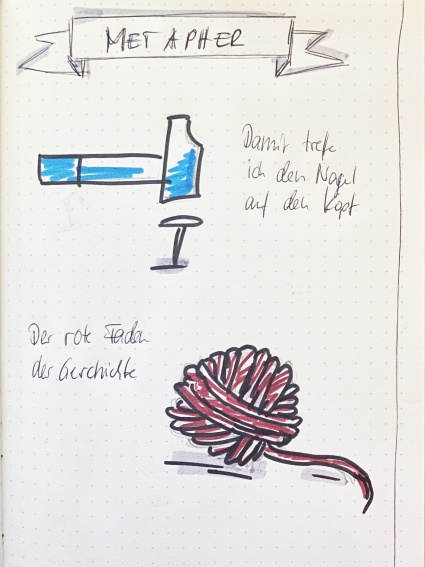 METAPHER
Damit trefe
ich den Nagel
auf den Kopf
Der rote Faden
der Geschichte